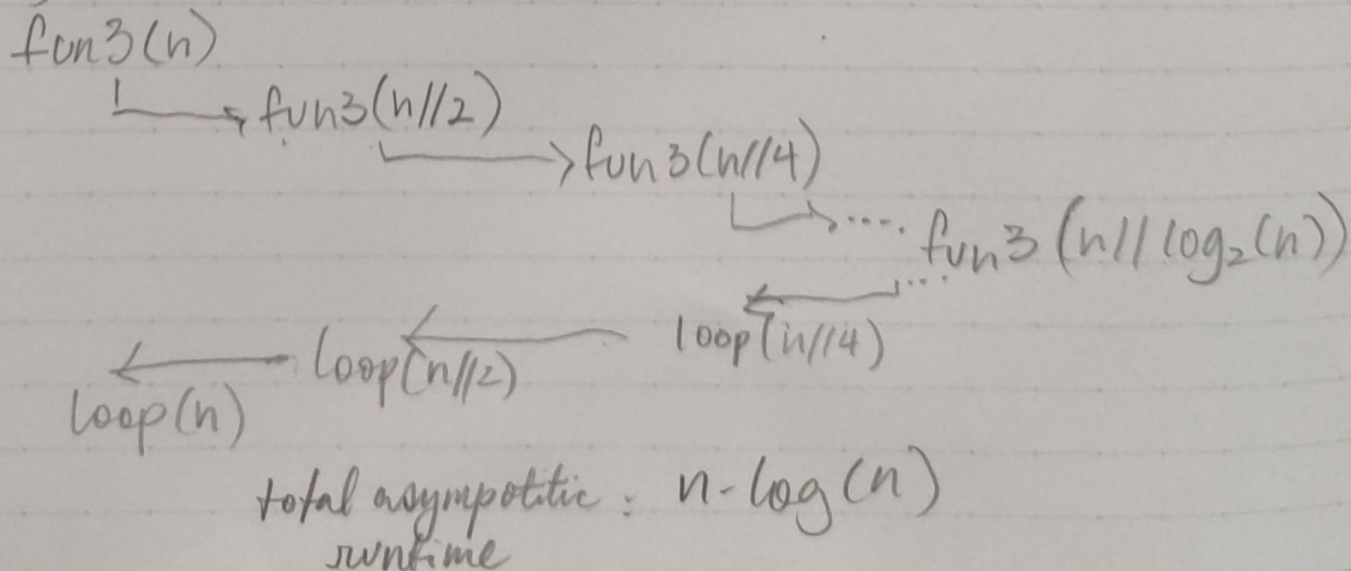 fun3(n)
fun3(n//2)
fun3(n//4)
.... fun3(n//log₂(n))
loop(n//4)
loop(n//2)
loop(n)
total asympotitic : n-log(n)
runtime